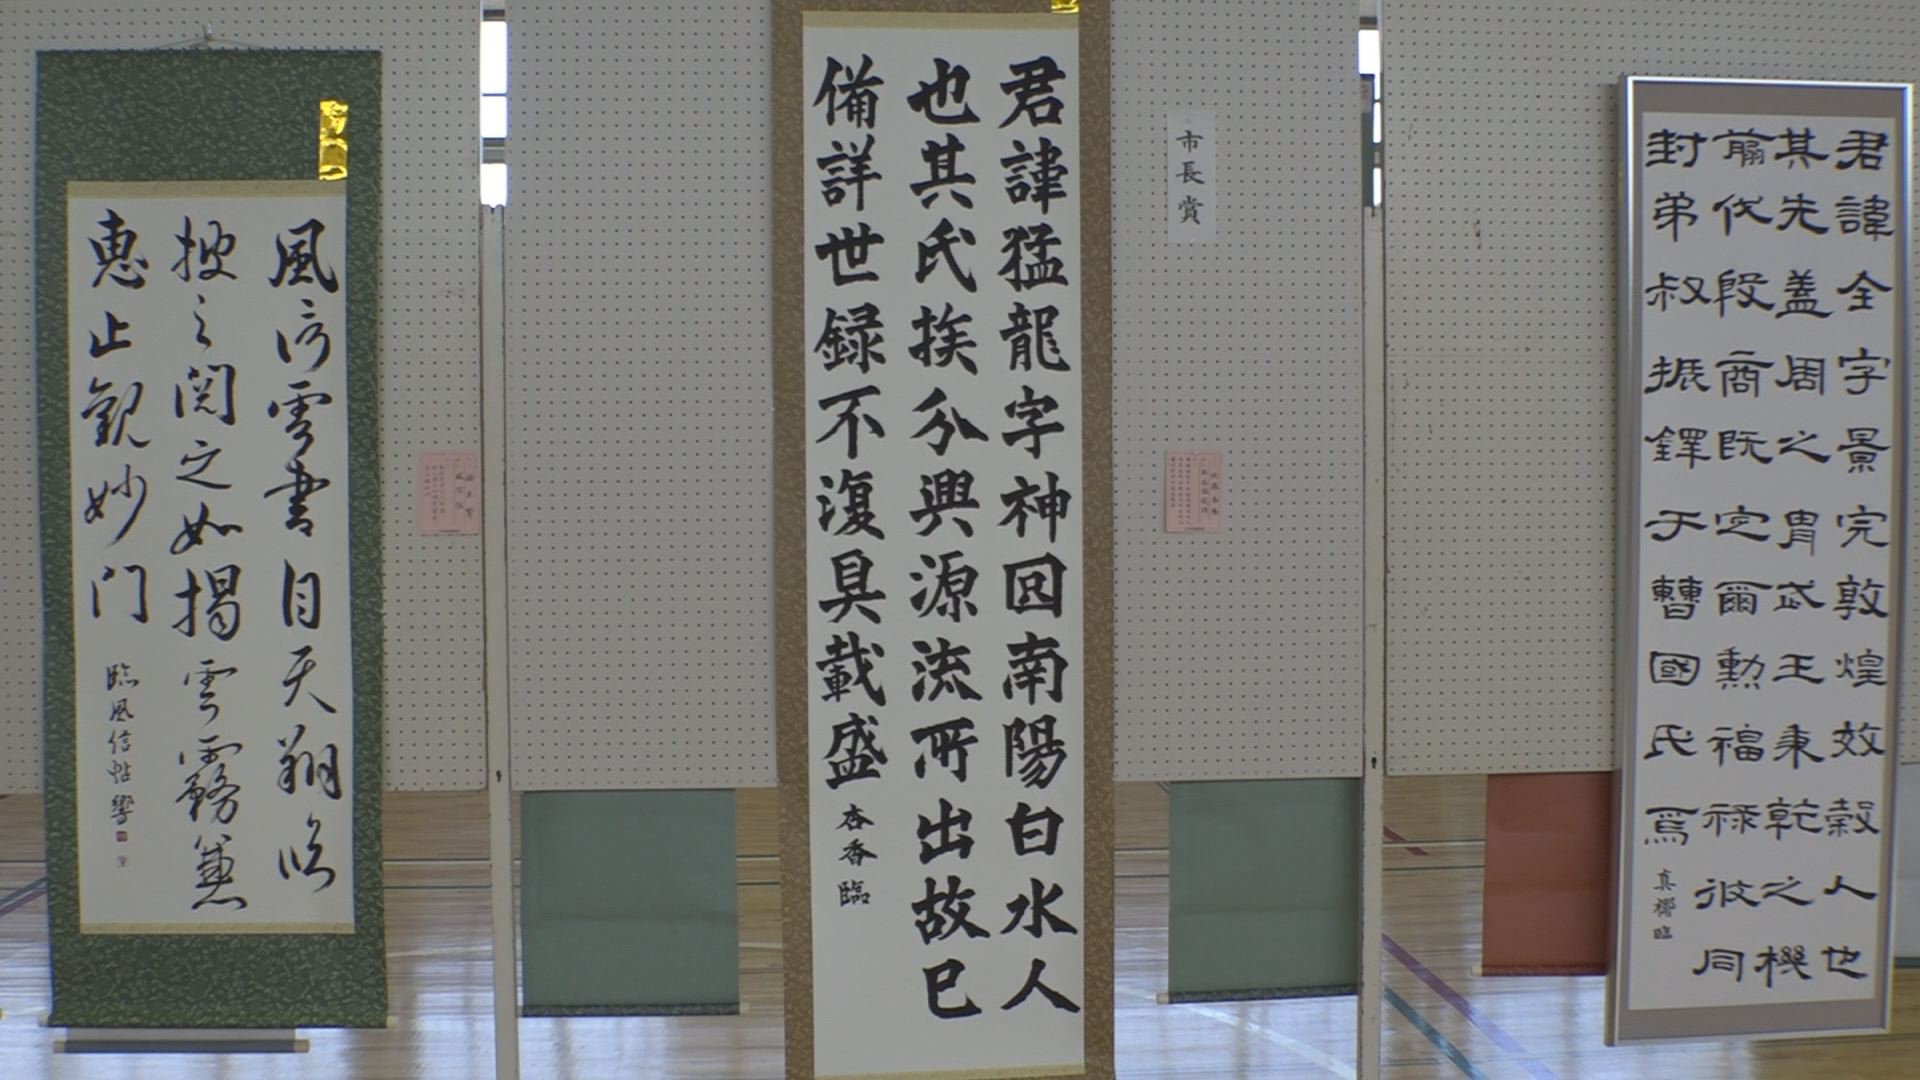 君諱全字景完敦煌效穀人也
其先蓋周之胄武王秉乾之機
翦伐殷商既定爾勲福祿攸同
封弟叔振鐸于曹國氏焉
真椰臨
市長賞
君諱猛龍字神囙南陽白水人
也其氏族分興源流所出故已
備詳世録不復具載盛
杏香臨
風信雲書自天翔臨
披之閲之如揭雲霧兼
恵止観妙門
臨風信帖響